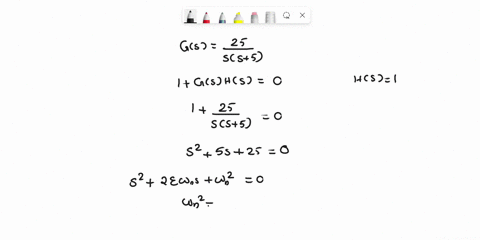 G(s) = 25 / s(s+5)
1 + G(s) H(s) = 0 H(s) = 1
1 + 25 / s(s+5) = 0
s² + 5s + 25 = 0
s² + 2ξωₙs + ωₙ² = 0
ωₙ² =